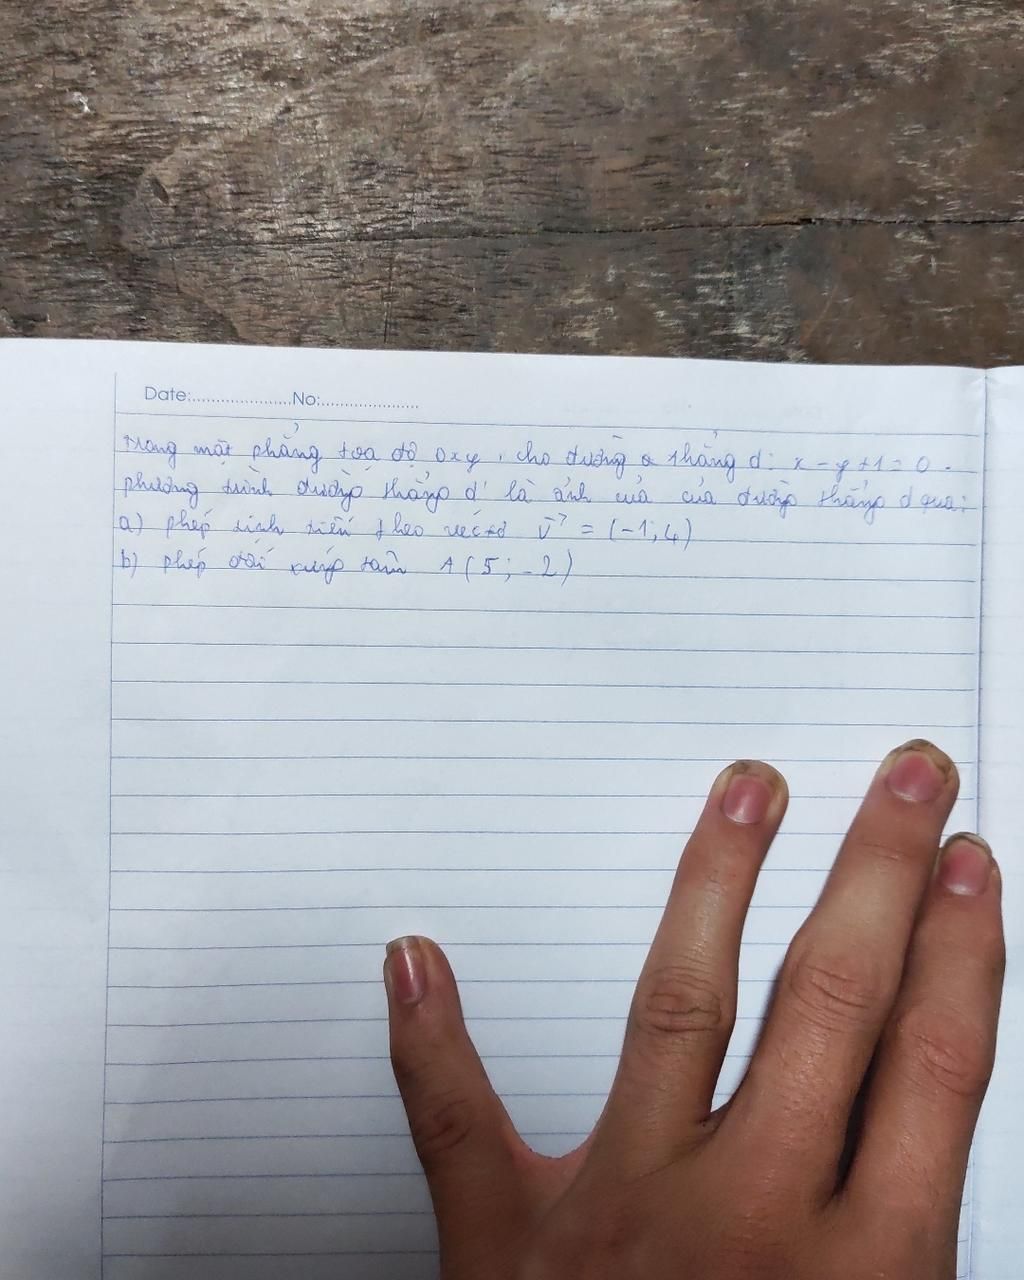 Date:.....................No:.....................
trong mặt phẳng tọa độ oxy, cho đường thẳng d: x - y + 1 = 0.
phương trình đường thẳng d' là ảnh của của đường thẳng d qua:
a) phép tịnh tiến theo véctơ v = (-1; 4)
b) phép đối xứng tâm A (5; -2)